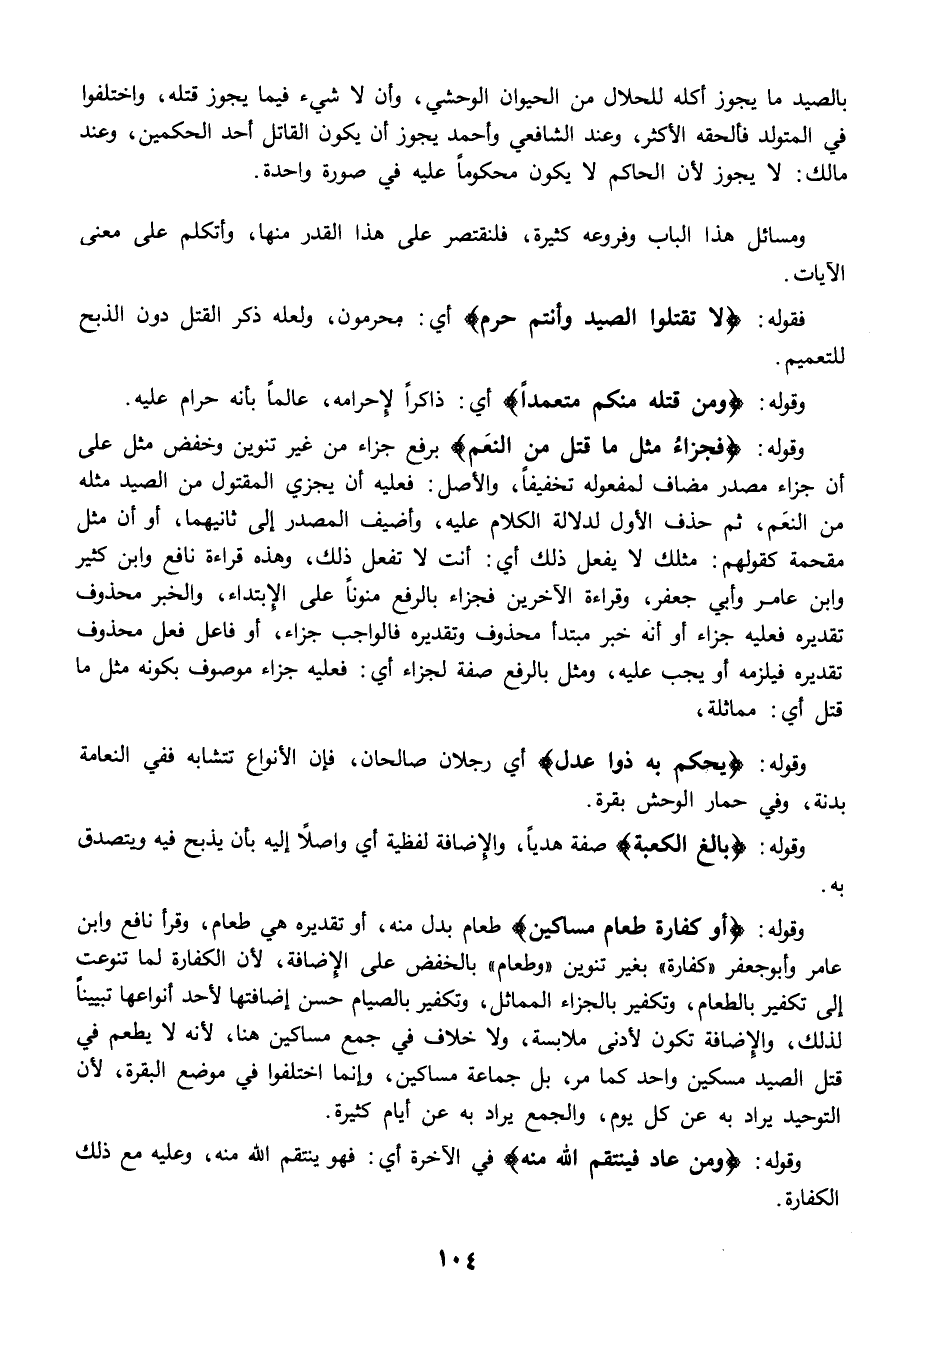 بالصيد ما يجوز أكله للحلال من الحيوان الوحشي، وأن لا شيء فيما يجوز قتله، واختلفوا
في المتولد فألحقه الأكثر، وعند الشافعي وأحمد يجوز أن يكون القاتل أحد الحكمين، وعند
مالك: لا يجوز لأن الحاكم لا يكون محكوماً عليه في صورة واحدة.
ومسائل هذا الباب وفروعه كثيرة، فلنقتصر على هذا القدر منها، وأتكلم على معنى
الآيات.
فقوله: ﴿لا تقتلوا الصيد وأنتم حرم﴾ أي: محرمون، ولعله ذكر القتل دون الذبح
للتعميم.
وقوله: ﴿ومن قتله منكم متعمداً﴾ أي: ذاكراً لإحرامه، عالماً بأنه حرام عليه.
وقوله: ﴿فجزاءُ مثل ما قتل من النعَم﴾ برفع جزاء من غير تنوين وخفض مثل على
أن جزاء مصدر مضاف لمفعوله تخفيفاً، والأصل: فعليه أن يجزي المقتول من الصيد مثله
من النعَم، ثم حذف الأول لدلالة الكلام عليه، وأضيف المصدر إلى ثانيهما، أو أن مثل
مقحمة كقولهم: مثلك لا يفعل ذلك أي: أنت لا تفعل ذلك، وهذه قراءة نافع وابن كثير
وابن عامر وأبي جعفر، وقراءة الآخرين فجزاء بالرفع منوناً على الإبتداء، والخبر محذوف
تقديره فعليه جزاء أو أنه خبر مبتدأ محذوف وتقديره فالواجب جزاء، أو فاعل فعل محذوف
تقديره فيلزمه أو يجب عليه، ومثل بالرفع صفة لجزاء أي: فعليه جزاء موصوف بكونه مثل ما
قتل أي: مماثلة،
وقوله: ﴿يحكم به ذوا عدل﴾ أي رجلان صالحان، فإن الأنواع تتشابه ففي النعامة
بدنة، وفي حمار الوحش بقرة.
وقوله: ﴿بالغ الكعبة﴾ صفة هدياً، والإضافة لفظية أي واصلًا إليه بأن يذبح فيه ويتصدق
به.
وقوله: ﴿أو كفارة طعام مساكين﴾ طعام بدل منه، أو تقديره هي طعام، وقرأ نافع وابن
عامر وأبوجعفر «كفارة» بغير تنوين «وطعام» بالخفض على الإضافة، لأن الكفارة لما تنوعت
إلى تكفير بالطعام، وتكفير بالجزاء المماثل، وتكفير بالصيام حسن إضافتها لأحد أنواعها تبييناً
لذلك، والإضافة تكون لأدنى ملابسة، ولا خلاف في جمع مساكين هنا، لأنه لا يطعم في
قتل الصيد مسكين واحد كما مر، بل جماعة مساكين، وإنما اختلفوا في موضع البقرة، لأن
التوحيد يراد به عن كل يوم، والجمع يراد به عن أيام كثيرة.
وقوله: ﴿ومن عاد فينتقم الله منه﴾ في الآخرة أي: فهو ينتقم الله منه، وعليه مع ذلك
الكفارة.
١٠٤